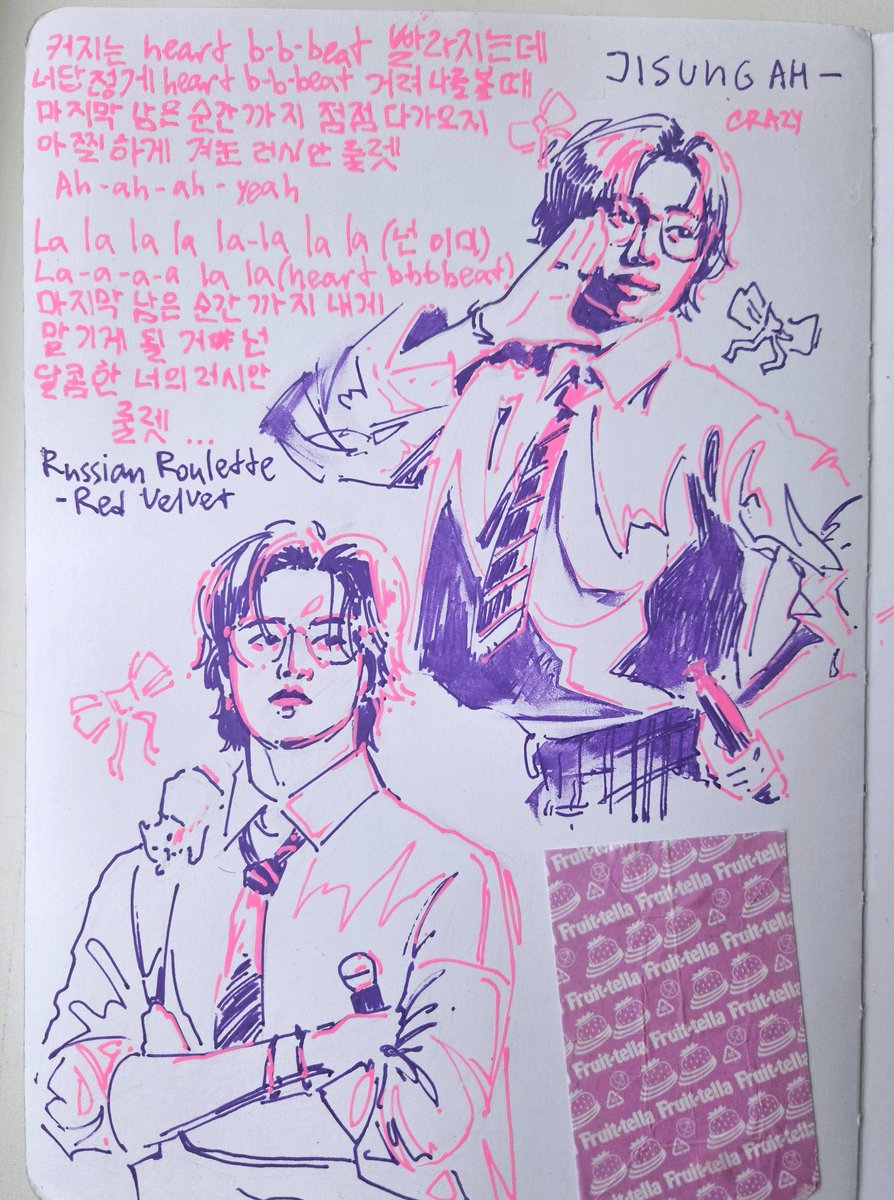 커지는 heart b-b-beat 빨라지는데
너답잖게 heart b-b-beat 거려 나를 볼 때
마지막 남은 순간까지 점점 다가오지
아찔하게 겨눈 러시안 룰렛
Ah-ah-ah-yeah
La la la la la-la la la (넌 이미)
La-a-a-a la la (heart bbbbeat)
마지막 남은 순간까지 내게
맡기게 될 거야 넌
달콤한 너의 러시안
룰렛...
Russian Roulette
-Red Velvet
JISUNG AH-
CRAZY
Fruit-tella
Fruit-tella Fruit-tella
Fruit-tella Fruit-tella
Fruit-tella Fruit-tella
Fruit-tella Fruit-tella
Fruit-tella Fruit-tella